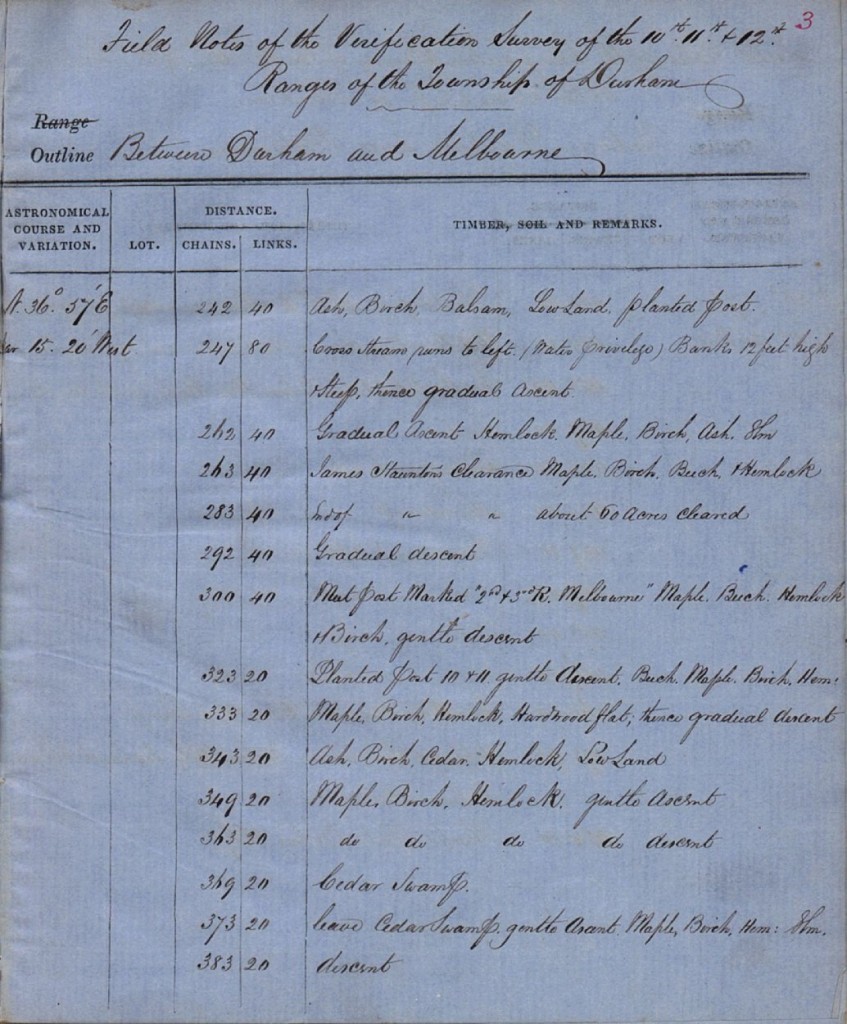 3
Field Notes of the Verification Survey of the 10th 11th & 12th
Ranges of the Township of Durham
Range
Outline Between Durham and Melbourne
ASTRONOMICAL COURSE AND VARIATION. LOT. DISTANCE. CHAINS. LINKS. TIMBER, SOIL AND REMARKS.
N. 36° 57' E 242 40 Ash, Birch, Balsam, Low Land, planted post.
Var 15. 20' West 247 80 Cross stream runs to left. (Water Privelege) Banks 12 feet high
& steep, thence gradual Ascent.
262 40 Gradual Ascent Hemlock. Maple. Birch, Ash. Elm
263 40 James Stauntons Clearance Maple, Birch, Beech, & Hemlock
283 40 End of " " about 60 Acres cleared
292 40 Gradual descent
300 40 Meet post Marked "2nd & 3rd R. Melbourne" Maple. Beech. Hemlock
& Birch, gentle descent
323 20 Planted Post 10 & 11 gentle descent. Beech. Maple. Birch. Hem:
333 20 Maple, Birch, Hemlock, Hardwood flat; thence gradual descent
343 20 Ash, Birch, Cedar, Hemlock, Low Land
349 20 Maple, Birch, Hemlock, gentle Ascent
363 20 do do do do descent
369 20 Cedar Swamp.
373 20 leave Cedar Swamp, gentle Ascent. Maple, Birch, Hem: Elm.
383 20 descent